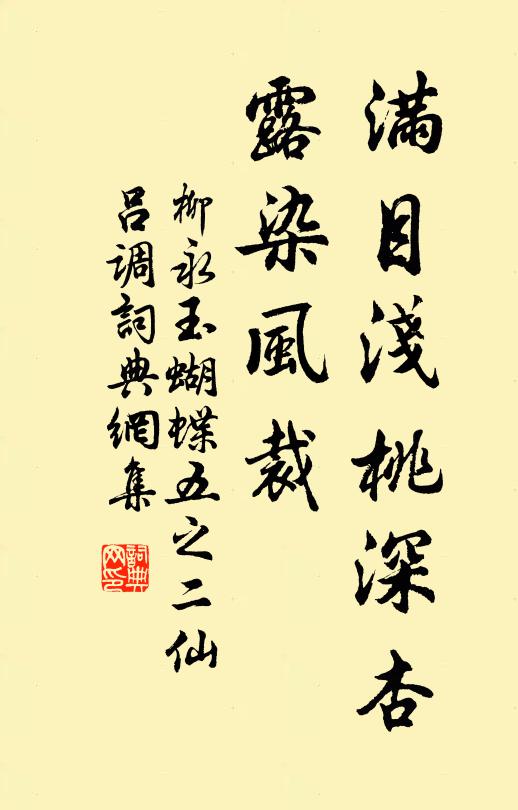 滿目淺桃深杏
露染風裁
柳永玉蝴蝶五之二仙
呂調詞典網集
詞典网印